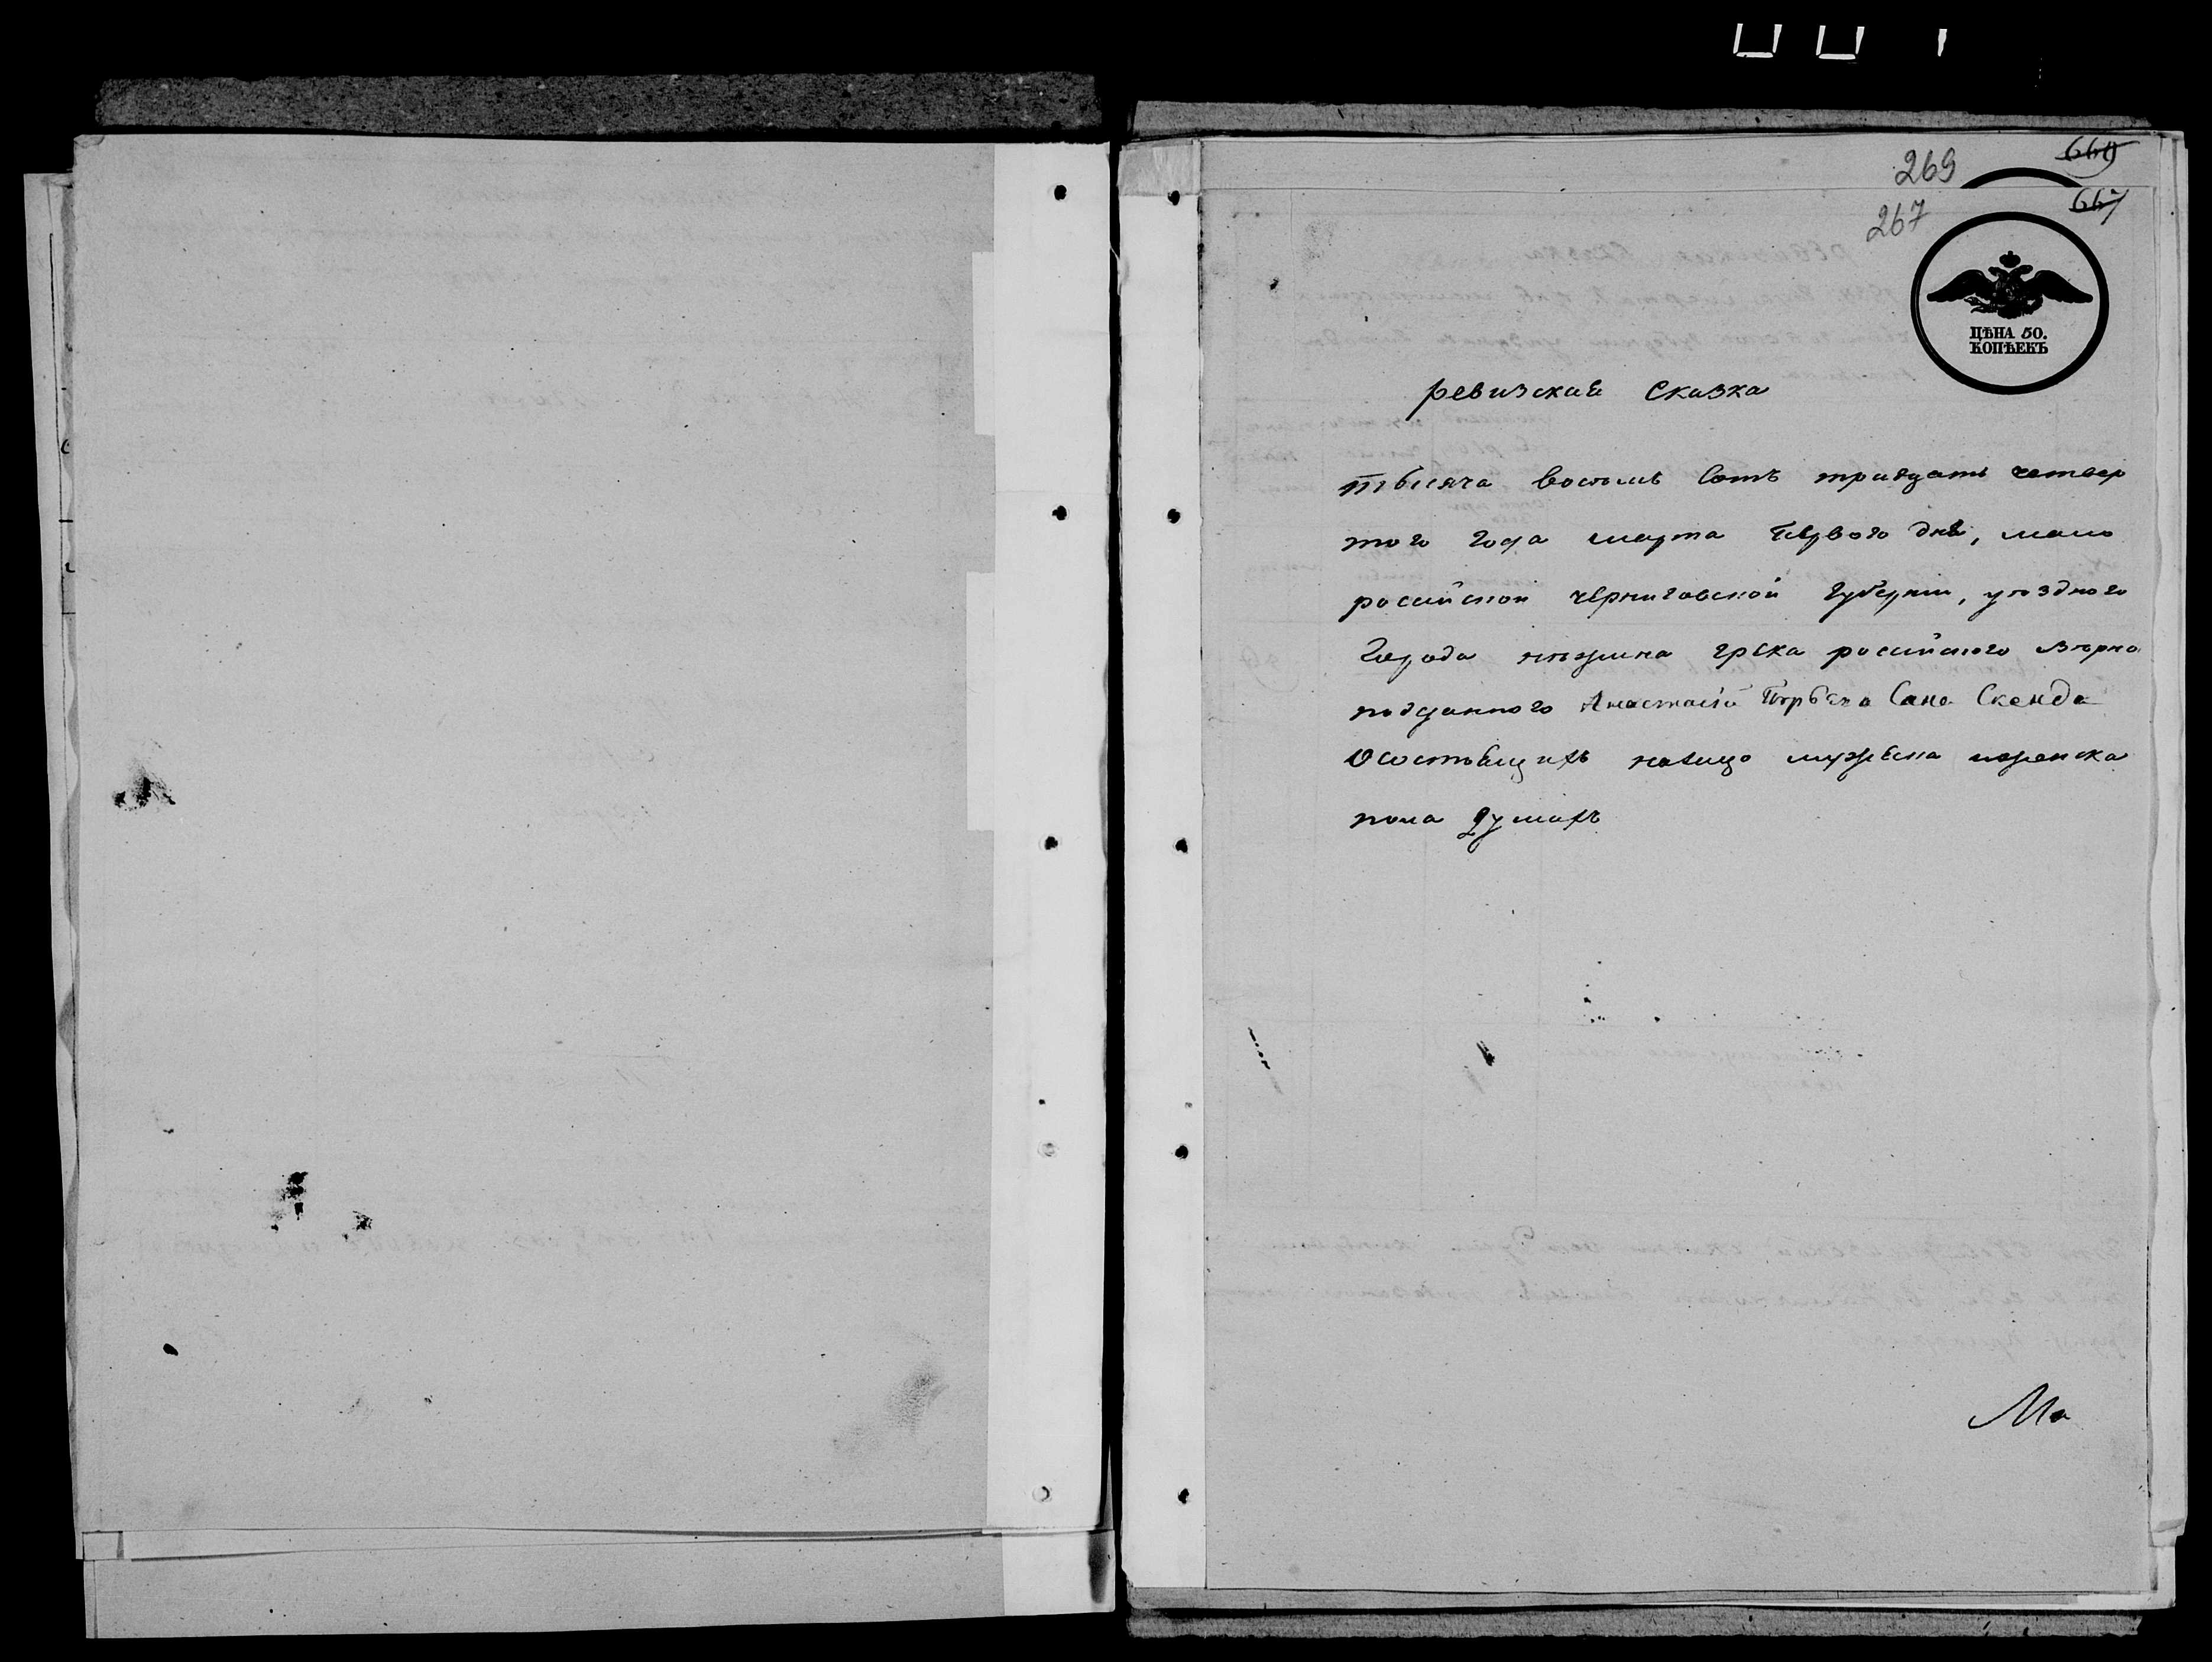 269
669
667
267
ЦѢНА 50.
КОПѢЕКЪ
ревизская Сказка
тысяча восемъ Сотъ тридцать четвер
того года марта первого дня, мало
россійской черниговской губерніи, уѣздного
Города нѣжина грека россійского вѣрно
подданного Анастасія Сана Скенда
О состоящихъ налицо мужеска иженска
пола душахъ
Ма